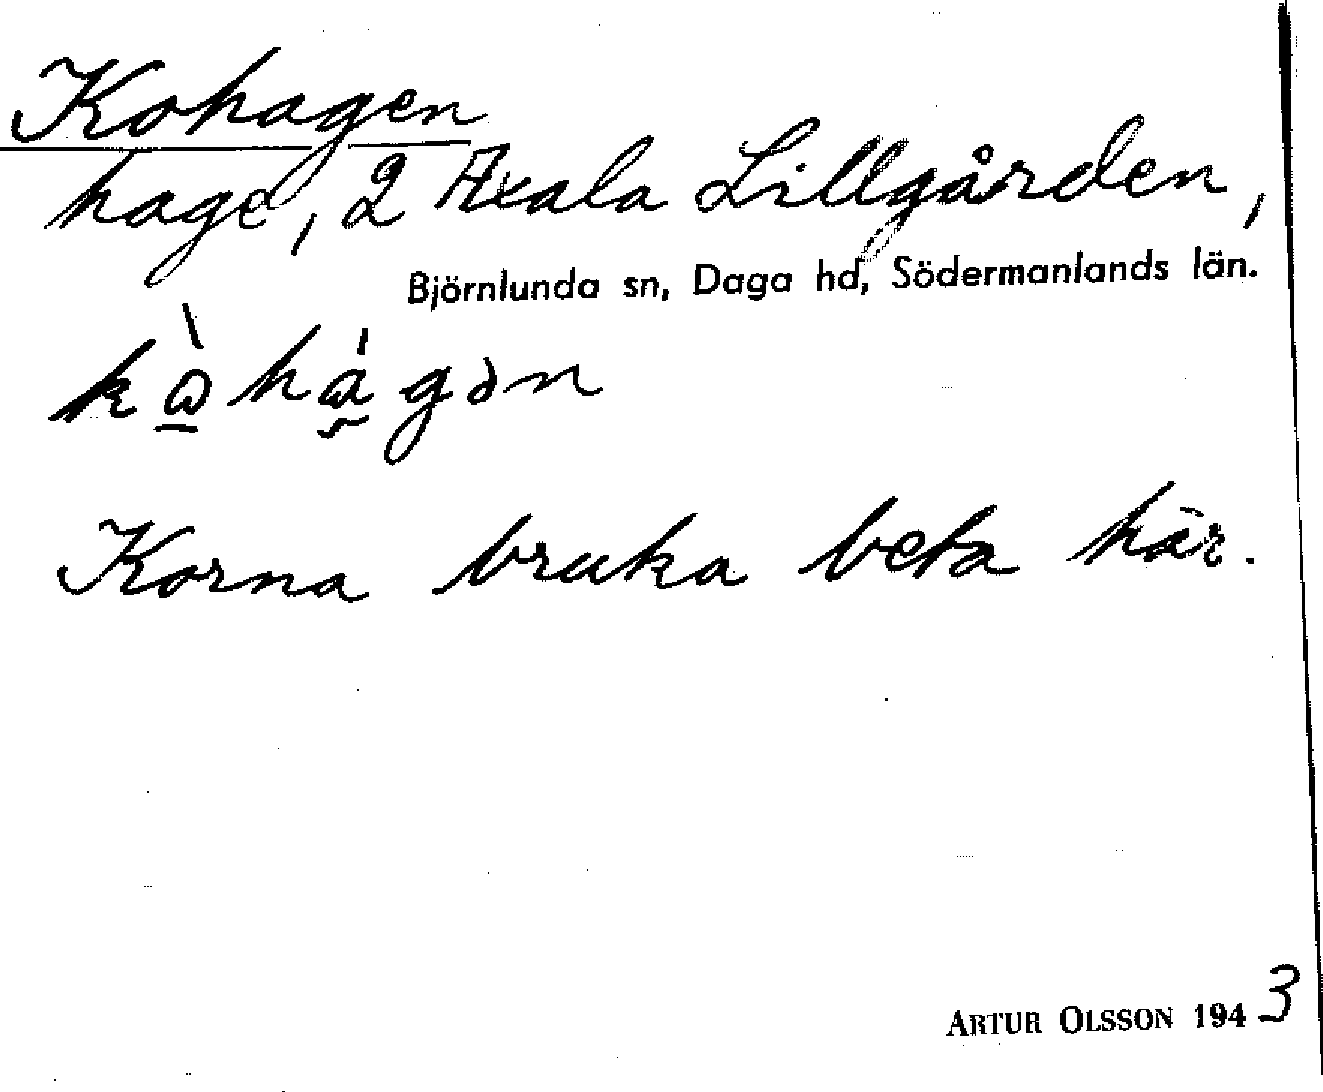 Kohagen
hage, 2 Axala Lillgården,
Björnlunda sn, Daga hd, Södermanlands län.
kὼhágən
Korna bruka beta här.
ARTUR OLSSON 1943